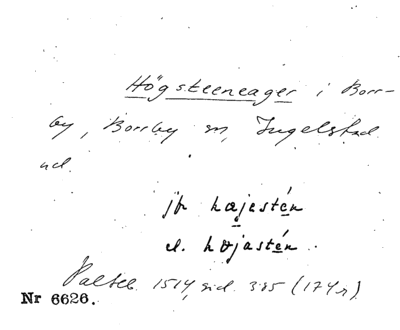 Högsteeneager i Borr-
by, Borrby sn, Ingelstad
hd.
jfr hæjestén
el. højastén.
Palteb. 1514, sid. 385 (174 r)
Nr 6626.